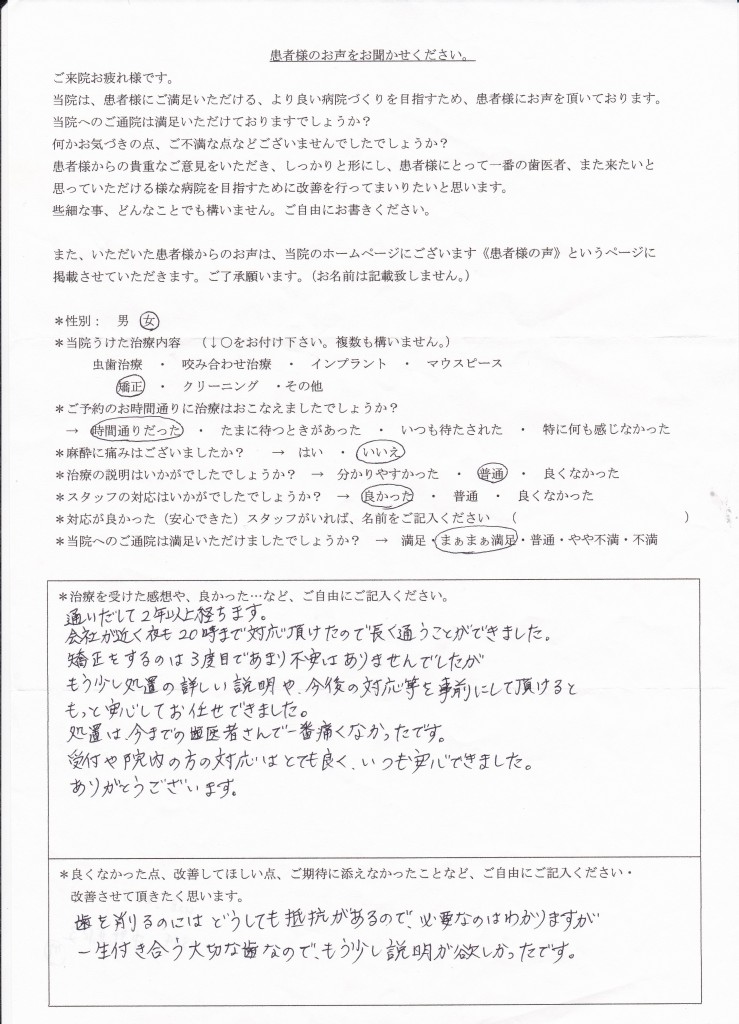 患者様のお声をお聞かせください。
ご来院お疲れ様です。
当院は、患者様にご満足いただける、より良い病院づくりを目指すため、患者様にお声を頂いております。
当院へのご通院は満足いただけておりますでしょうか？
何かお気づきの点、ご不満な点などございませんでしたでしょうか？
患者様からの貴重なご意見をいただき、しっかりと形にし、患者様にとって一番の歯医者、また来たいと
思っていただける様な病院を目指すために改善を行ってまいりたいと思います。
些細な事、どんなことでも構いません。ご自由にお書きください。
また、いただいた患者様からのお声は、当院のホームページにございます《患者様の声》というページに
掲載させていただきます。ご了承願います。（お名前は記載致しません。）
＊性別： 男 女
＊当院うけた治療内容 （↓〇をお付け下さい。複数も構いません。）
虫歯治療 ・ 咬み合わせ治療 ・ インプラント ・ マウスピース
矯正 ・ クリーニング ・その他
＊ご予約のお時間通りに治療はおこなえましたでしょうか？
→ 時間通りだった ・ たまに待つときがあった ・ いつも待たされた ・ 特に何も感じなかった
＊麻酔に痛みはございましたか？ → はい ・ いいえ
＊治療の説明はいかがでしたでしょうか？ → 分かりやすかった ・ 普通 ・ 良くなかった
＊スタッフの対応はいかがでしたでしょうか？ → 良かった ・ 普通 ・ 良くなかった
＊対応が良かった（安心できた）スタッフがいれば、名前をご記入ください （ ）
＊当院へのご通院は満足いただけましたでしょうか？ → 満足・まぁまぁ満足・普通・やや不満・不満
＊治療を受けた感想や、良かった…など、ご自由にご記入ください。
通いだして2年以上経ちます。
会社が近く夜も20時まで対応頂けたので長く通うことができました。
矯正をするのは3度目であまり不安はありませんでしたが
もう少し処置の詳しい説明や、今後の対応等を事前にして頂けると
もっと安心してお任せできました。
処置は、今までの歯医者さんで一番痛くなかったです。
受付や院内の方の対応はとても良く、いつも安心できました。
ありがとうございます。
＊良くなかった点、改善してほしい点、ご期待に添えなかったことなど、ご自由にご記入ください・
改善させて頂きたく思います。
歯を削るのにはどうしても抵抗があるので、必要なのはわかりますが
一生付き合う大切な歯なので、もう少し説明が欲しかったです。